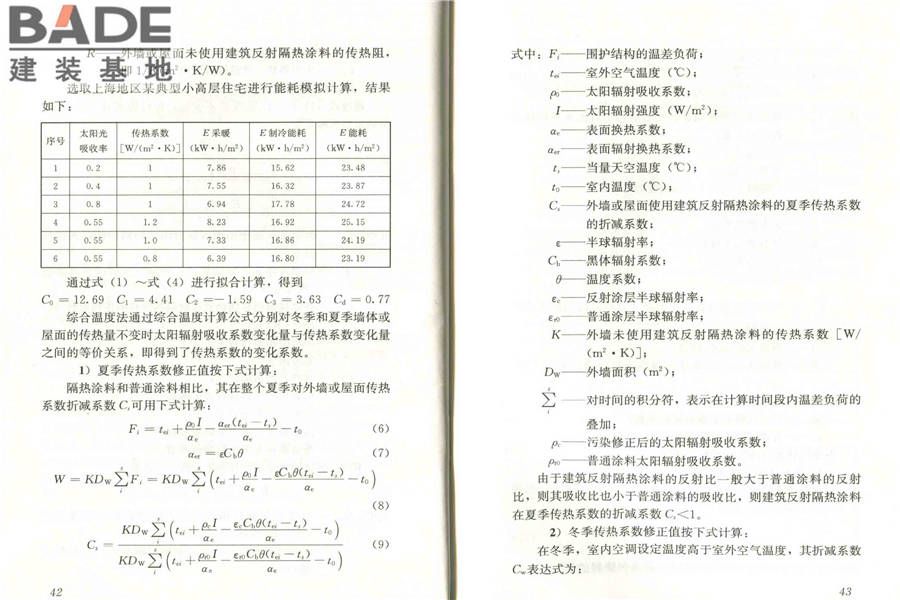 BADE
建装基地
R——外墙或屋面未使用建筑反射隔热涂料的传热阻,
即 1/ m²·K/W)。
选取上海地区某典型小高层住宅进行能耗模拟计算，结果
如下：
序号 太阳光吸收率 传热系数[W/(m²·K)] E采暖(kW·h/m²) E制冷能耗(kW·h/m²) E能耗(kW·h/m²)
1 0.2 1 7.86 15.62 23.48
2 0.4 1 7.55 16.32 23.87
3 0.8 1 6.94 17.78 24.72
4 0.55 1.2 8.23 16.92 25.15
5 0.55 1.0 7.33 16.86 24.19
6 0.55 0.8 6.39 16.80 23.19
通过式（1）～式（4）进行拟合计算，得到
C₀ = 12.69 C₁ = 4.41 C₂ =－1.59 C₃ = 3.63 C_d = 0.77
综合温度法通过综合温度计算公式分别对冬季和夏季墙体或
屋面的传热量不变时太阳辐射吸收系数变化量与传热系数变化量
之间的等价关系，即得到了传热系数的变化系数。
1）夏季传热系数修正值按下式计算：
隔热涂料和普通涂料相比，其在整个夏季对外墙或屋面传热
系数折减系数 Cₛ可用下式计算：
Fᵢ = t_ei + ρ₀I/αₑ − α_er(t_ei − tₛ)/αₑ − t₀ (6)
α_er = εC_bθ (7)
W = KD_W ∑Fᵢ = KD_W ∑(t_ei + ρ₀I/αₑ − εC_bθ(t_ei − tₛ)/αₑ − t₀)
(8)
Cₛ = KD_W ∑(t_ei + ρ_cI/αₑ − ε_cC_bθ(t_ei − tₛ)/αₑ − t₀) / KD_W ∑(t_ei + ρ_r0I/αₑ − ε_r0C_bθ(t_ei − tₛ)/αₑ − t₀) (9)
42
式中：Fᵢ——围护结构的温差负荷；
t_ei——室外空气温度（℃）；
ρ₀——太阳辐射吸收系数；
I——太阳辐射强度（W/m²）；
αₑ——表面换热系数；
α_er——表面辐射换热系数；
tₛ——当量天空温度（℃）；
t₀——室内温度（℃）；
Cₛ——外墙或屋面使用建筑反射隔热涂料的夏季传热系数
的折减系数；
ε——半球辐射率；
C_b——黑体辐射系数；
θ——温度系数；
ε_c——反射涂层半球辐射率；
ε_r0——普通涂层半球辐射率；
K——外墙未使用建筑反射隔热涂料的传热系数［W/
（m²·K）］；
D_W——外墙面积（m²）；
∑——对时间的积分符，表示在计算时间段内温差负荷的
叠加；
ρ_c——污染修正后的太阳辐射吸收系数；
ρ_r0——普通涂料太阳辐射吸收系数。
由于建筑反射隔热涂料的反射比一般大于普通涂料的反射
比，则其吸收比也小于普通涂料的吸收比，则建筑反射隔热涂料
在夏季传热系数的折减系数 Cₛ＜1。
2）冬季传热系数修正值按下式计算：
在冬季，室内空调设定温度高于室外空气温度，其折减系数
C_w表达式为：
43